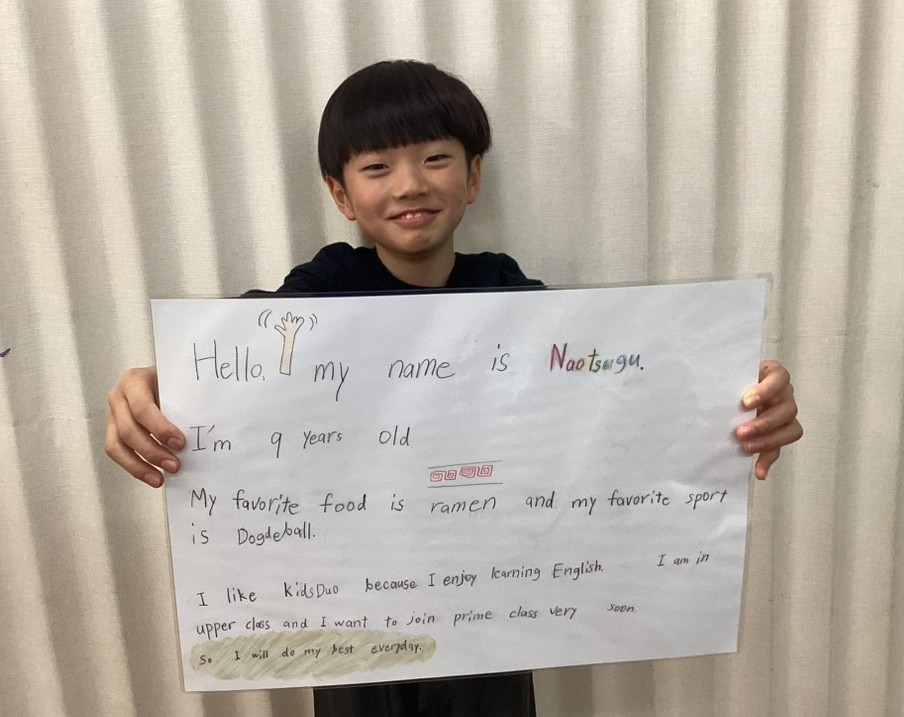 Hello. my name is Naotsugu.
I'm 9 years old
My favorite food is ramen and my favorite sport
is Dogdeball.
I like KidsDuo because I enjoy learning English. I am in
upper class and I want to join prime class very soon.
So I will do my best everyday.